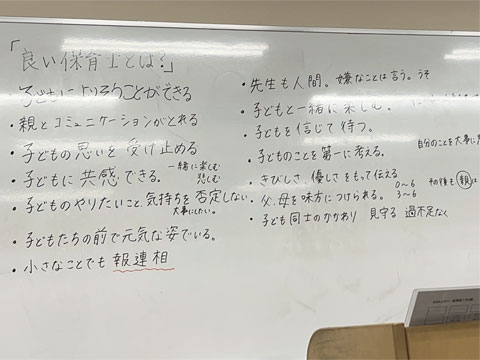 「良い保育士とは？」
子どもによりそうことができる
・親とコミュニケーションがとれる
・子どもの思いを受け止める
・子どもに共感できる。 一緒に楽しむ
悲しむ
・子どものやりたいこと、気持ちを否定しない。
大事にしたい。
・子どもたちの前で元気な姿でいる。
・小さなことでも報連相
・先生も人間。嫌なことは言う。うそ
・子どもと一緒に楽しむ。
・子どもを信じて待つ。
自分のことを大事に
・子どものことを第一に考える。
・きびしさ、優しさをもって伝える
0〜6
・父、母を味方につけられる。 3〜6
親
・子ども同士のかかわり 見守る 過不足なく